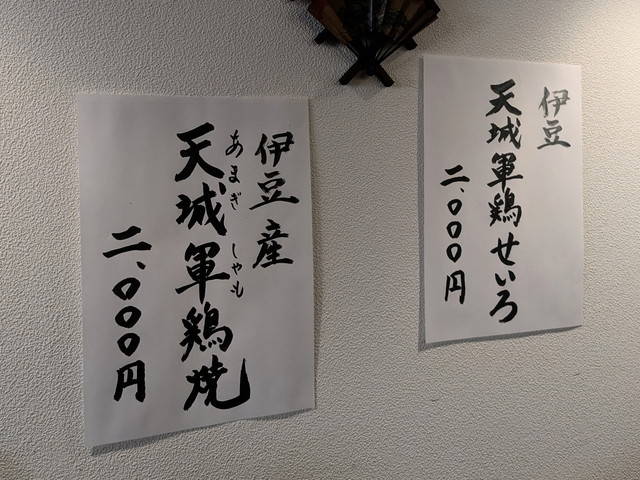 伊豆
天城軍鶏せいろ
二、〇〇〇円
伊豆産
あまぎ しゃも
天城軍鶏焼
二、〇〇〇円